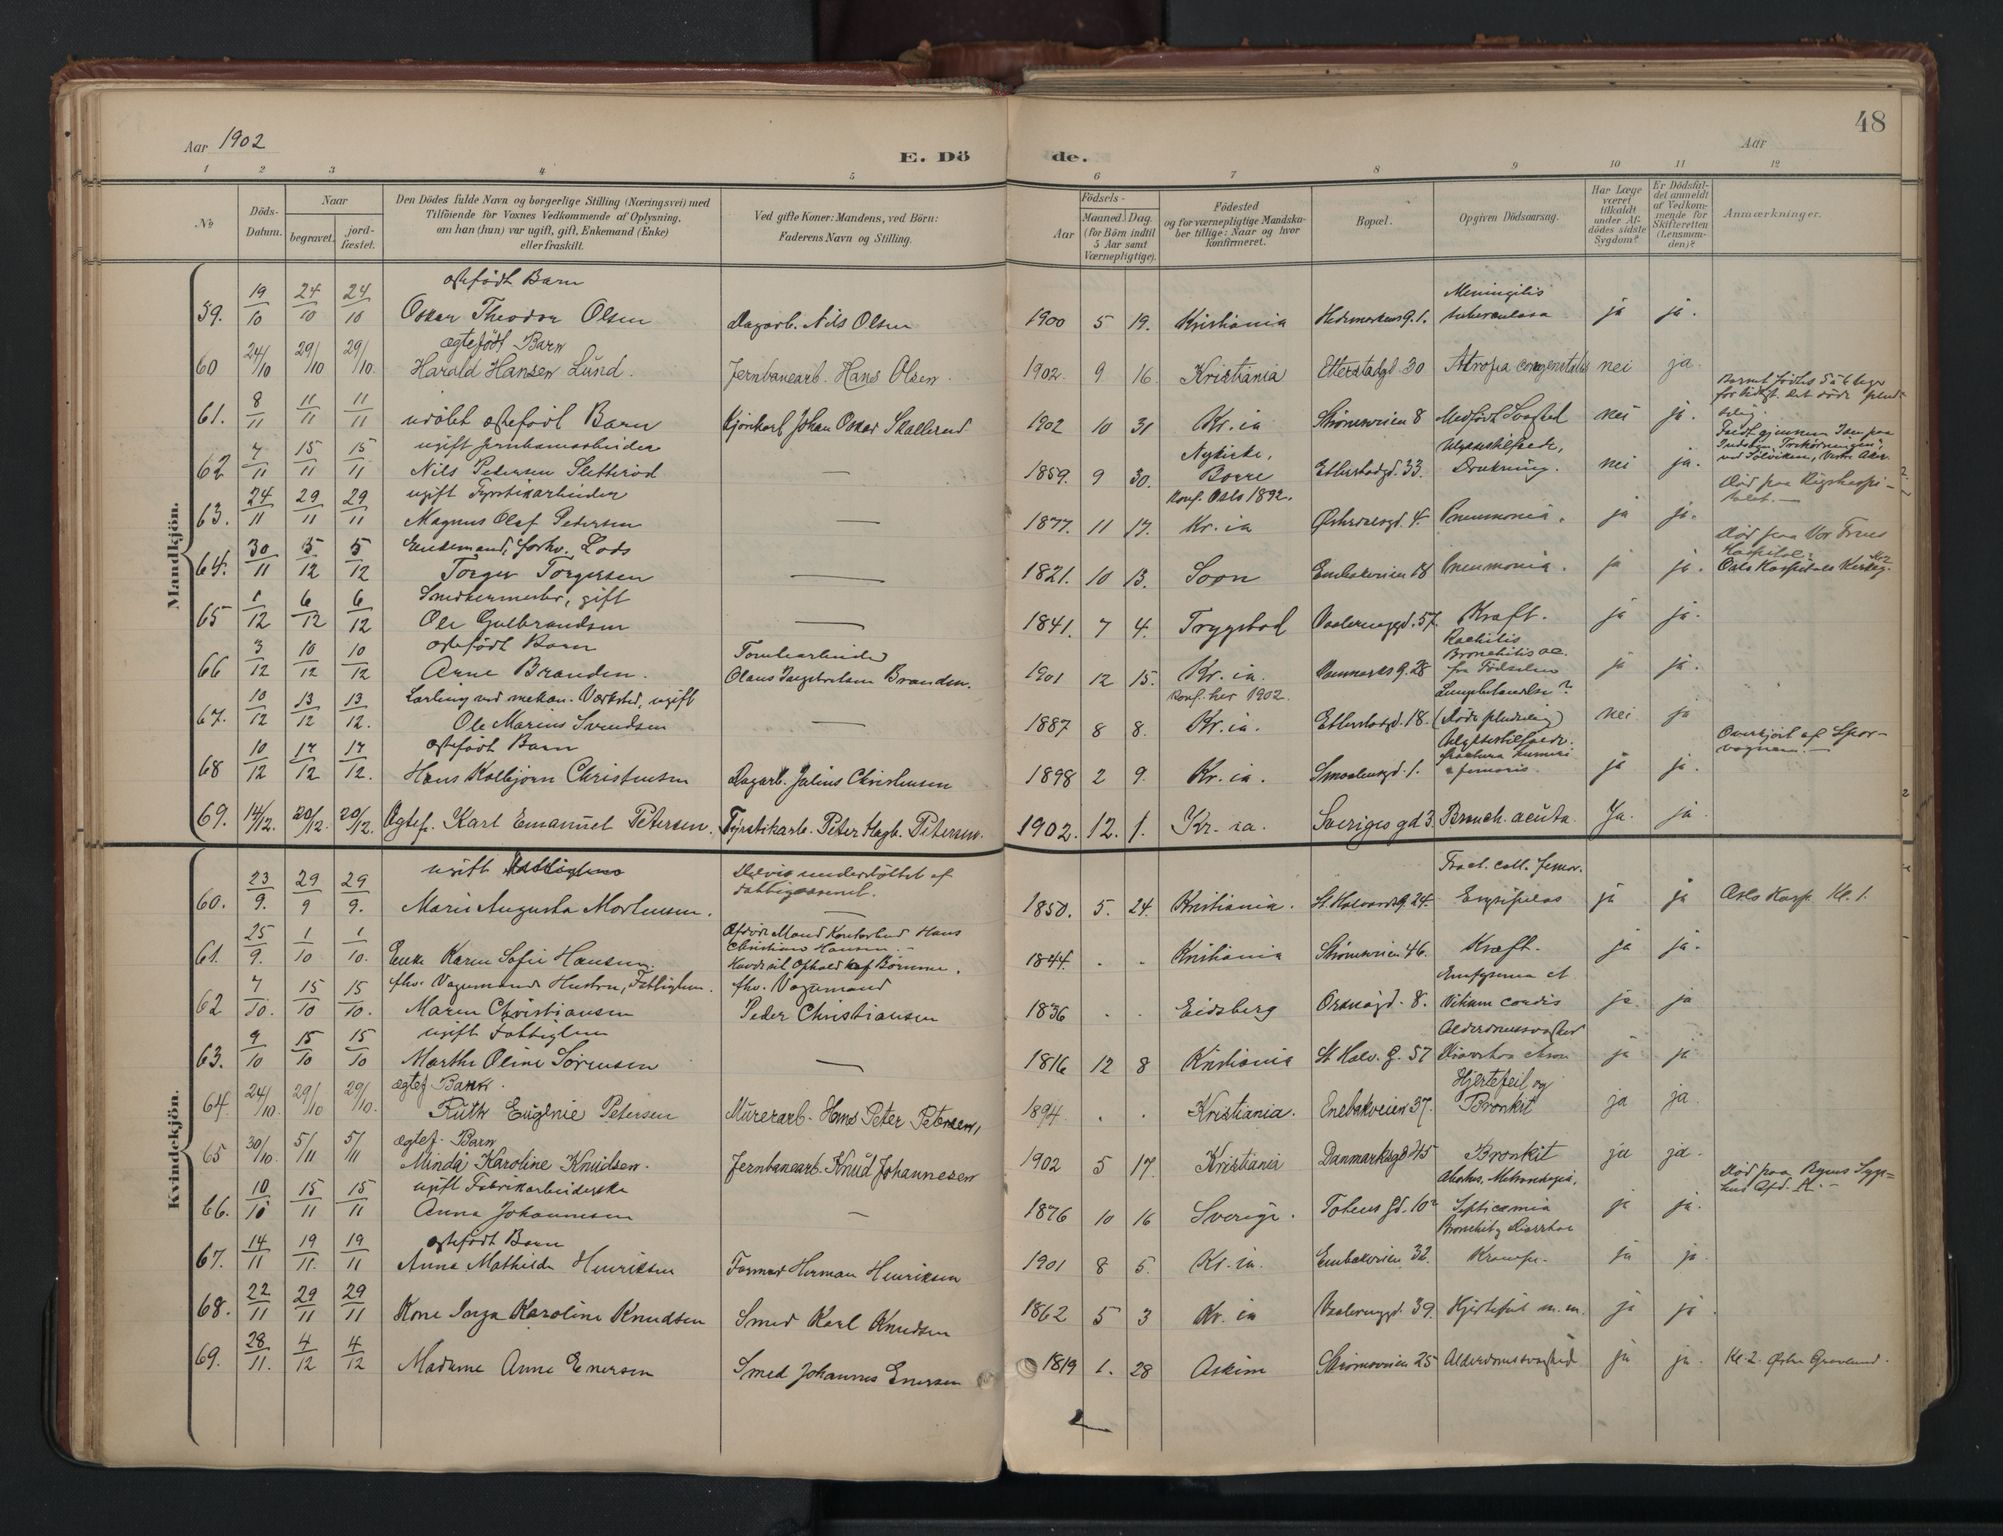 48
Aar 1902
E. Dö
de.
Aar
1 2 3 4 5 6 7 8 9 10 11 12
№
Döds-Datum.
Naar
begravet.
jord-fæstet.
Den Dödes fulde Navn og borgerlige Stilling (Næringsvei) med
Tilföiende for Voxnes Vedkommende af Oplysning,
om han (hun) var ugift, gift, Enkemand (Enke)
eller fraskilt.
Ved gifte Koner: Mandens, ved Börn:
Faderens Navn og Stilling.
Födsels-
Aar
Maaned. Dag.
(for Börn indtil
5 Aar samt
Værnepligtige).
Födested
og for værnepligtige Mandska-
ber tillige: Naar og hvor
konfirmeret.
Bopæl.
Opgiven Dödsaarsag.
Har Læge
været
tilkaldt
under Af-
dödes sidste
Sygdom?
Er Dödsfal-
det anmeldt
af Vedkom-
mende for
Skifteretten
(Lensman-
den)?
Anmærkninger.
Mandkjön.
59. 19/10 24/10 24/10 ægtefødt Barn
Oskar Theodor Olsen Dagarb. Nils Olsen 1900 5 19. Kristiania Hedemarkens g. 1. Meningitis tuberculosa ja ja.
60 24/10 29/10 29/10 ægtefödt Barn
Harald Hansen Lund. Jernbanearb. Hans Olsen. 1902. 9 16. Kristiania Etterstadgt 30 Atropia congenitalis nei ja.
61. 8/11 11/11 11/11 udøbt ægtefødt Barn Johan Oskar Skallerud 1902 10 31 Kr. ia Strømsveien 8 Medfødt Svaghed nei ja.
62 7/11 15/11 15/11 ugift Jernbanearbeider
Nils Pedersen Sletterød — 1859. 9 30. Nykirke, Borre Etterstadgd. 33. Ulykkestilfælde, Drukning. nei ja.
63. 24/11 29/11 29/11 ugift Fyrstikarbeider
Magnus Olaf Pedersen — 1877. 11 17. Konf. Oslo 1892. Kr. ia Østerdalsgd. 4. Pneumonia. ja ja. Død paa Rigshospi-
talet.—
64. 30/11 5/12 5/12 Enkemand, forhv. Lods
Torger Torgersen — 1821. 10 13. Soon Enebakveien 18 Pneumonia. ja ja. Død paa Vor Frues
Hospital.
Oslo Hospitals Kirkeg.
65 1/12 6/12 6/12 Smedkermester, gift
Ole Gulbrandsen — 1841. 7 4. Trygstad Vaalerenggd. 57. Kræft. ja ja.
66 3/12 10/12 10/12 ægtefødt Barn
Arne Branden. Tomtearbeider
Olaus Branden. 1901 12 15. Kr. ia. Danmarks g. 28 Rachitis Bronchitis ac. fra Fødselen ja ja.
67. 10/12 13/12 13/12. Lærling ved mekan. Værksted, ugift
Ole Marius Svendsen — 1887 8 8. Konf. her 1902. Kr. ia. Etterstadgd. 18. Lungebetændelse? (Døde pludselig) nei ja
68 10/12 17/12 17/12. ægtefødt Barn
Hans Kolbjørn Christensen Dagarb. Julius Christensen 1898 2 9. Kr. ia. Smaalensgd. 1. Ulykkestilfælde. fractura humeri & femoris. ja ja. Overkjørt af Spor-
vognen.—
69. 14/12. 20/12. 20/12. Ægtef. Karl Emanuel Petersen. Fyrstikarb. Peter Hagb. Petersen. 1902. 12. 1. Kr. ia. Sveriges gd 3. Bronch. acuta. Ja. ja.
Kvindekjön.
60. 23/9. 29/9 29/9. ugift Fattiglem
Marie Augusta Mortensen. Delvis understøttet af
Fattigvæsenet. — 1850. 5. 24. Kristiania. St. Halvards g. 24. Fract. coll. femor. Erysipelas ja ja Oslo Hosp. Kl. 1.
61. 25/9. 1/10 1/10. Enke Karen Sofie Hansen. Afdøde Mand Kontorbud Hans
Christian Hansen.—
Havde sit Ophold af Børnene. 1844. . . Kristiania Strømsveien 46. Kræft. ja ja.
62 7/10. 15/10 15/10. fhv. Vognmands Hustru, Fattiglem.
Maren Christiansen fhv. Vognmand
Peder Christiansen 1836 . . Eidsberg Ordnegd. 8. Emfysema et Vitium cordis ja. ja
63. 9/10 15/10 15/10 ugift Fattiglem
Marthe Oline Sørensen — 1816 12 8 Kristiania St. Halv. G. 57 Alderdomssvaghed ja ja
64. 24/10. 29/10 29/10. ægtef. Barn.
Ruth Eugenie Petersen Murerarb. Hans Peter Petersen, 1894. . . Kristiania. Enebakveien 37. Hjertefeil og Bronkit ja ja.
65 30/10. 5/11 5/11 ægtef. Barn
Minda Karoline Knudsen. Jernbanearb. Knud Johannesen 1902 5 17. Kristiania Danmarksgd 45 Bronkit ja ja.
66. 10/10 15/11 15/11 ugift Fabrikarbeiderske
Anna Johannesen — 1876 10 16 Sverige. Totens Gd. 10 Septicæmia ja ja. Død paa Byens Syge-
hus Afd. A.—
67. 14/11 19/11. 19/11 ægtefødt Barn
Anna Mathilde Henriksen Former Herman Henriksen 1901 8 5. Kr. ia. Enebakveien 32. Bronchit, Diarrhoe Krampe. ja ja.
68. 22/11 29/11 29/11 Kone Inga Karoline Knudsen Smed Karl Knudsen 1862 5 3 Kr. ia Vaalerenggd. 39. Hjertefeil m. m. ja ja.
69. 28/11. 4/12 4/12 Madame Anne Enersen Smed Johannes Enersen 1819 1. 28 Askim Strømsveien 25 Alderdomssvaghed ja ja. Kl. 2. Østre Gravlund.